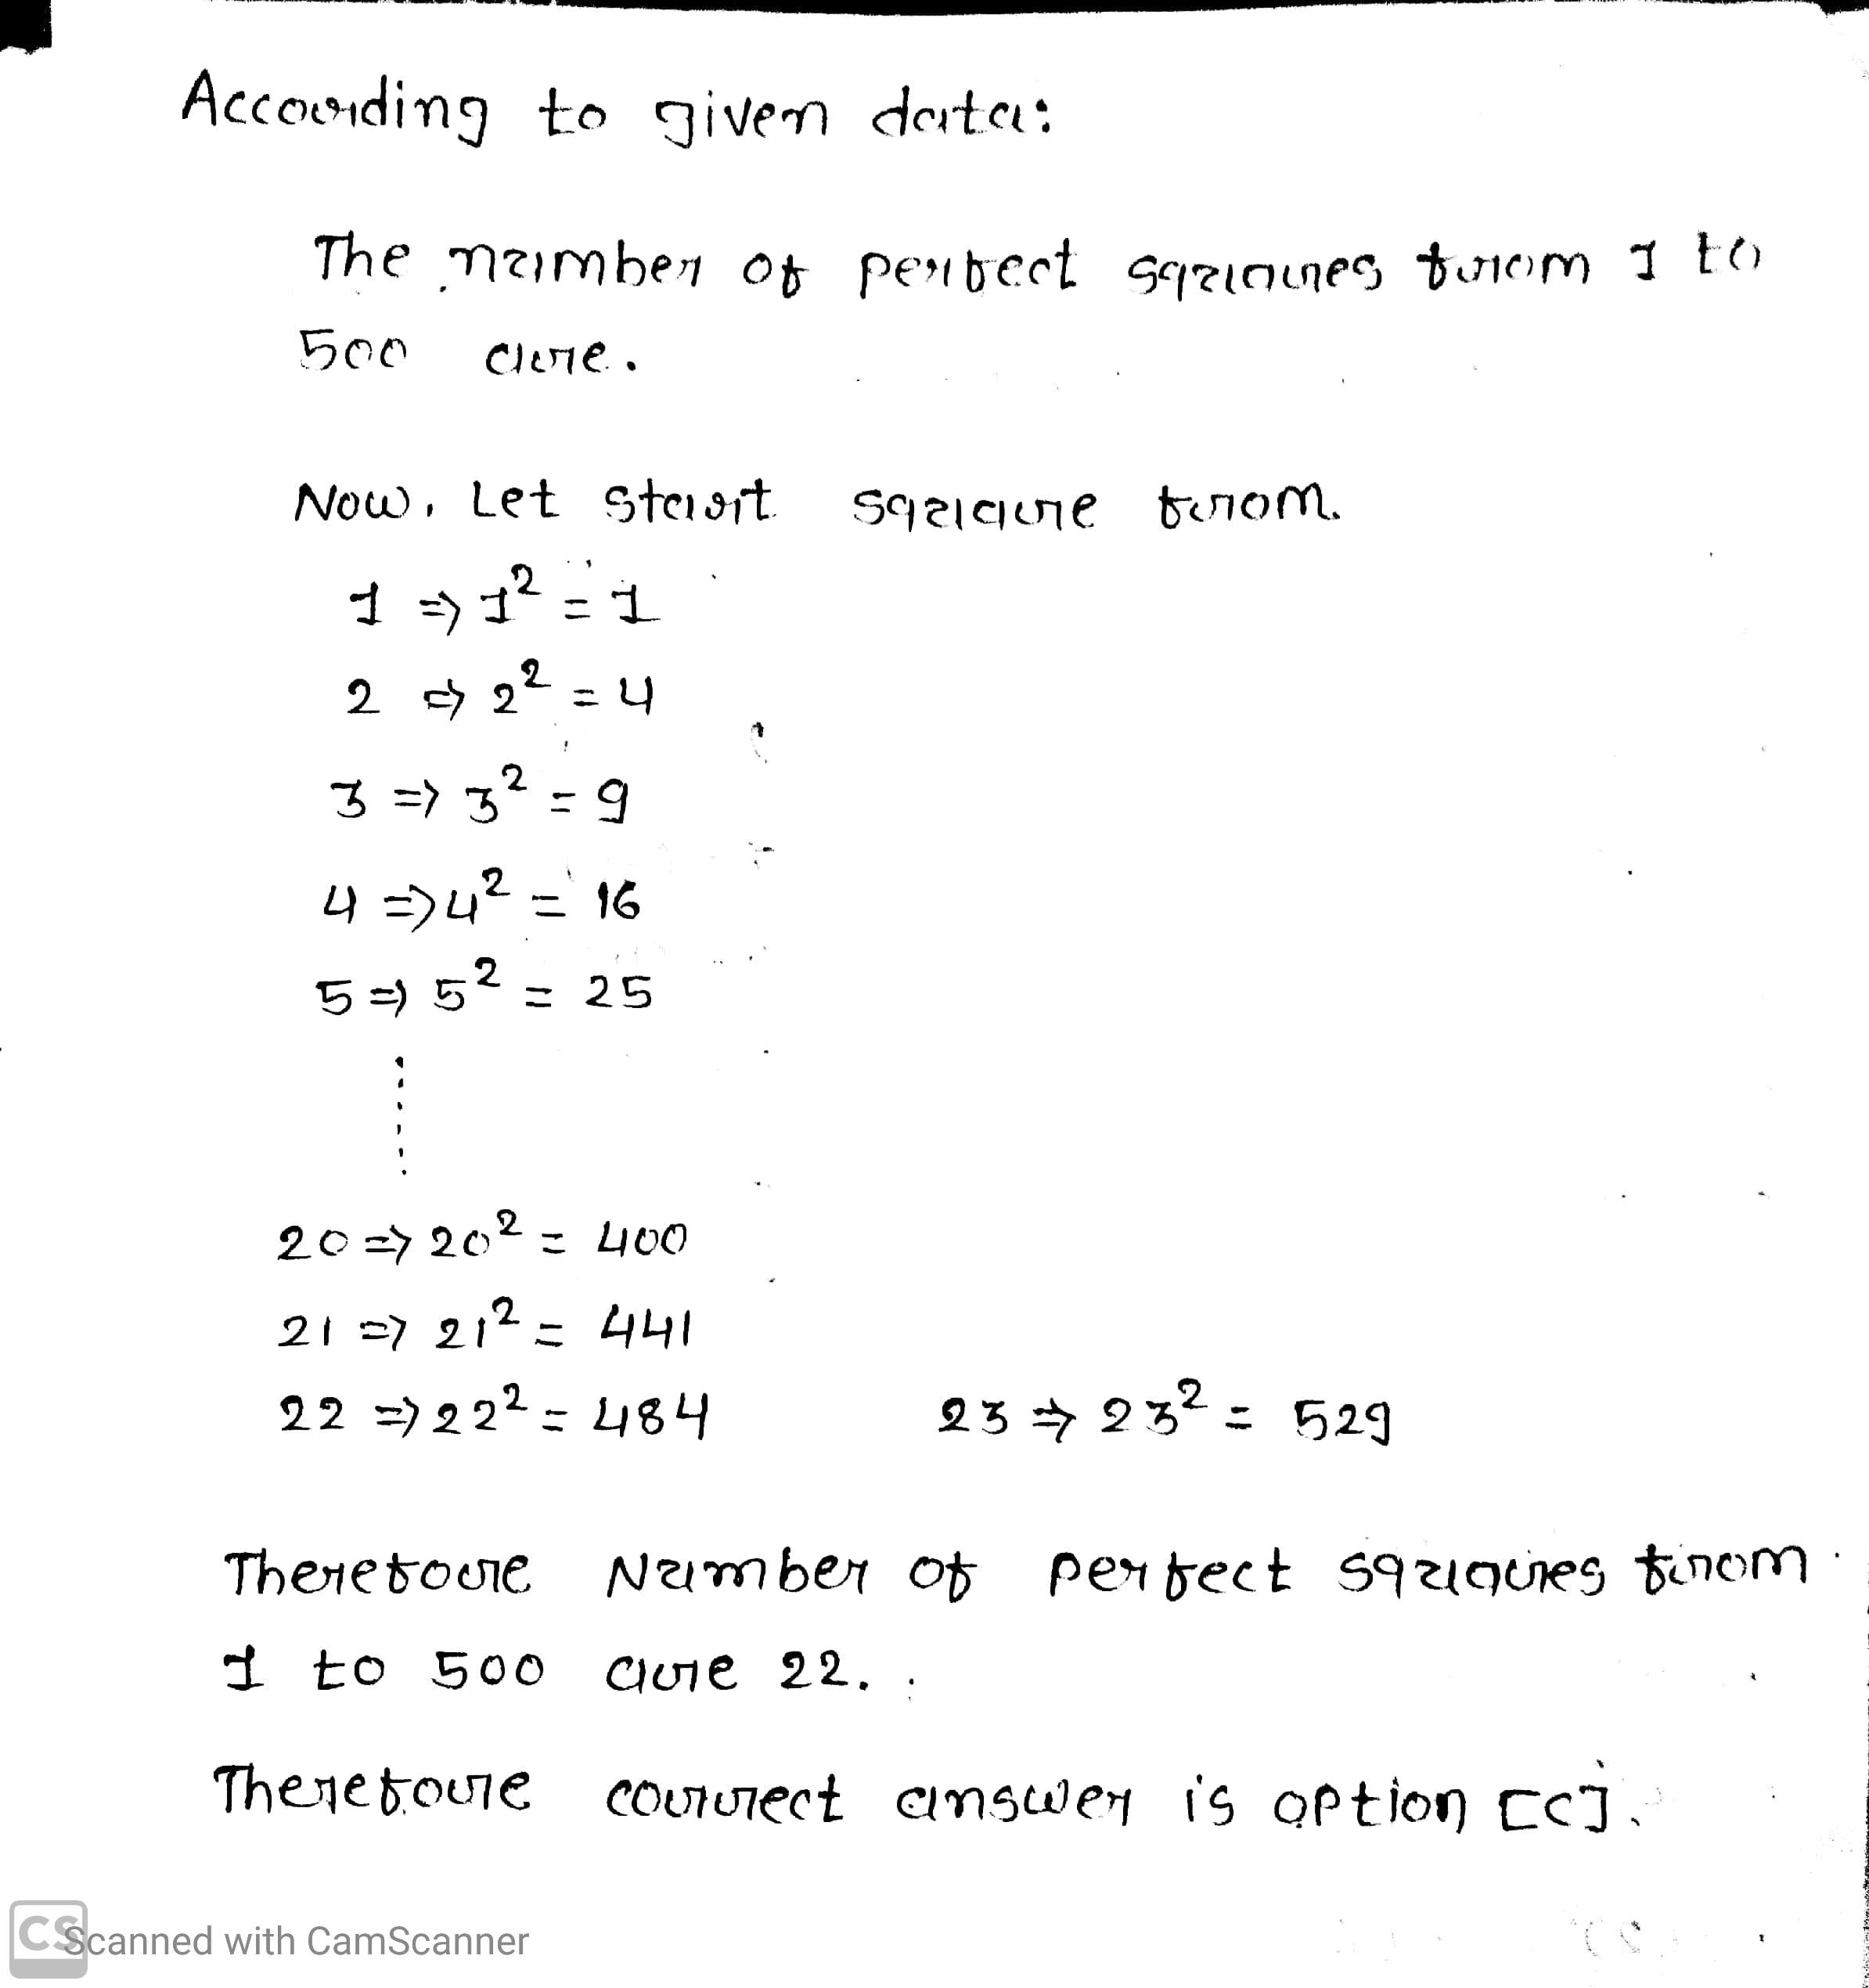 According to given data:
The number of perfect squares from 1 to
500 are.
Now, Let start square from.
1 ⇒ 1² = 1
2 ⇒ 2² = 4
3 ⇒ 3² = 9
4 ⇒ 4² = 16
5 ⇒ 5² = 25
20 ⇒ 20² = 400
21 ⇒ 21² = 441
22 ⇒ 22² = 484 23 ⇒ 23² = 529
Therefore Number of perfect squares from
1 to 500 are 22.
Therefore correct answer is option [c].
CS Scanned with CamScanner